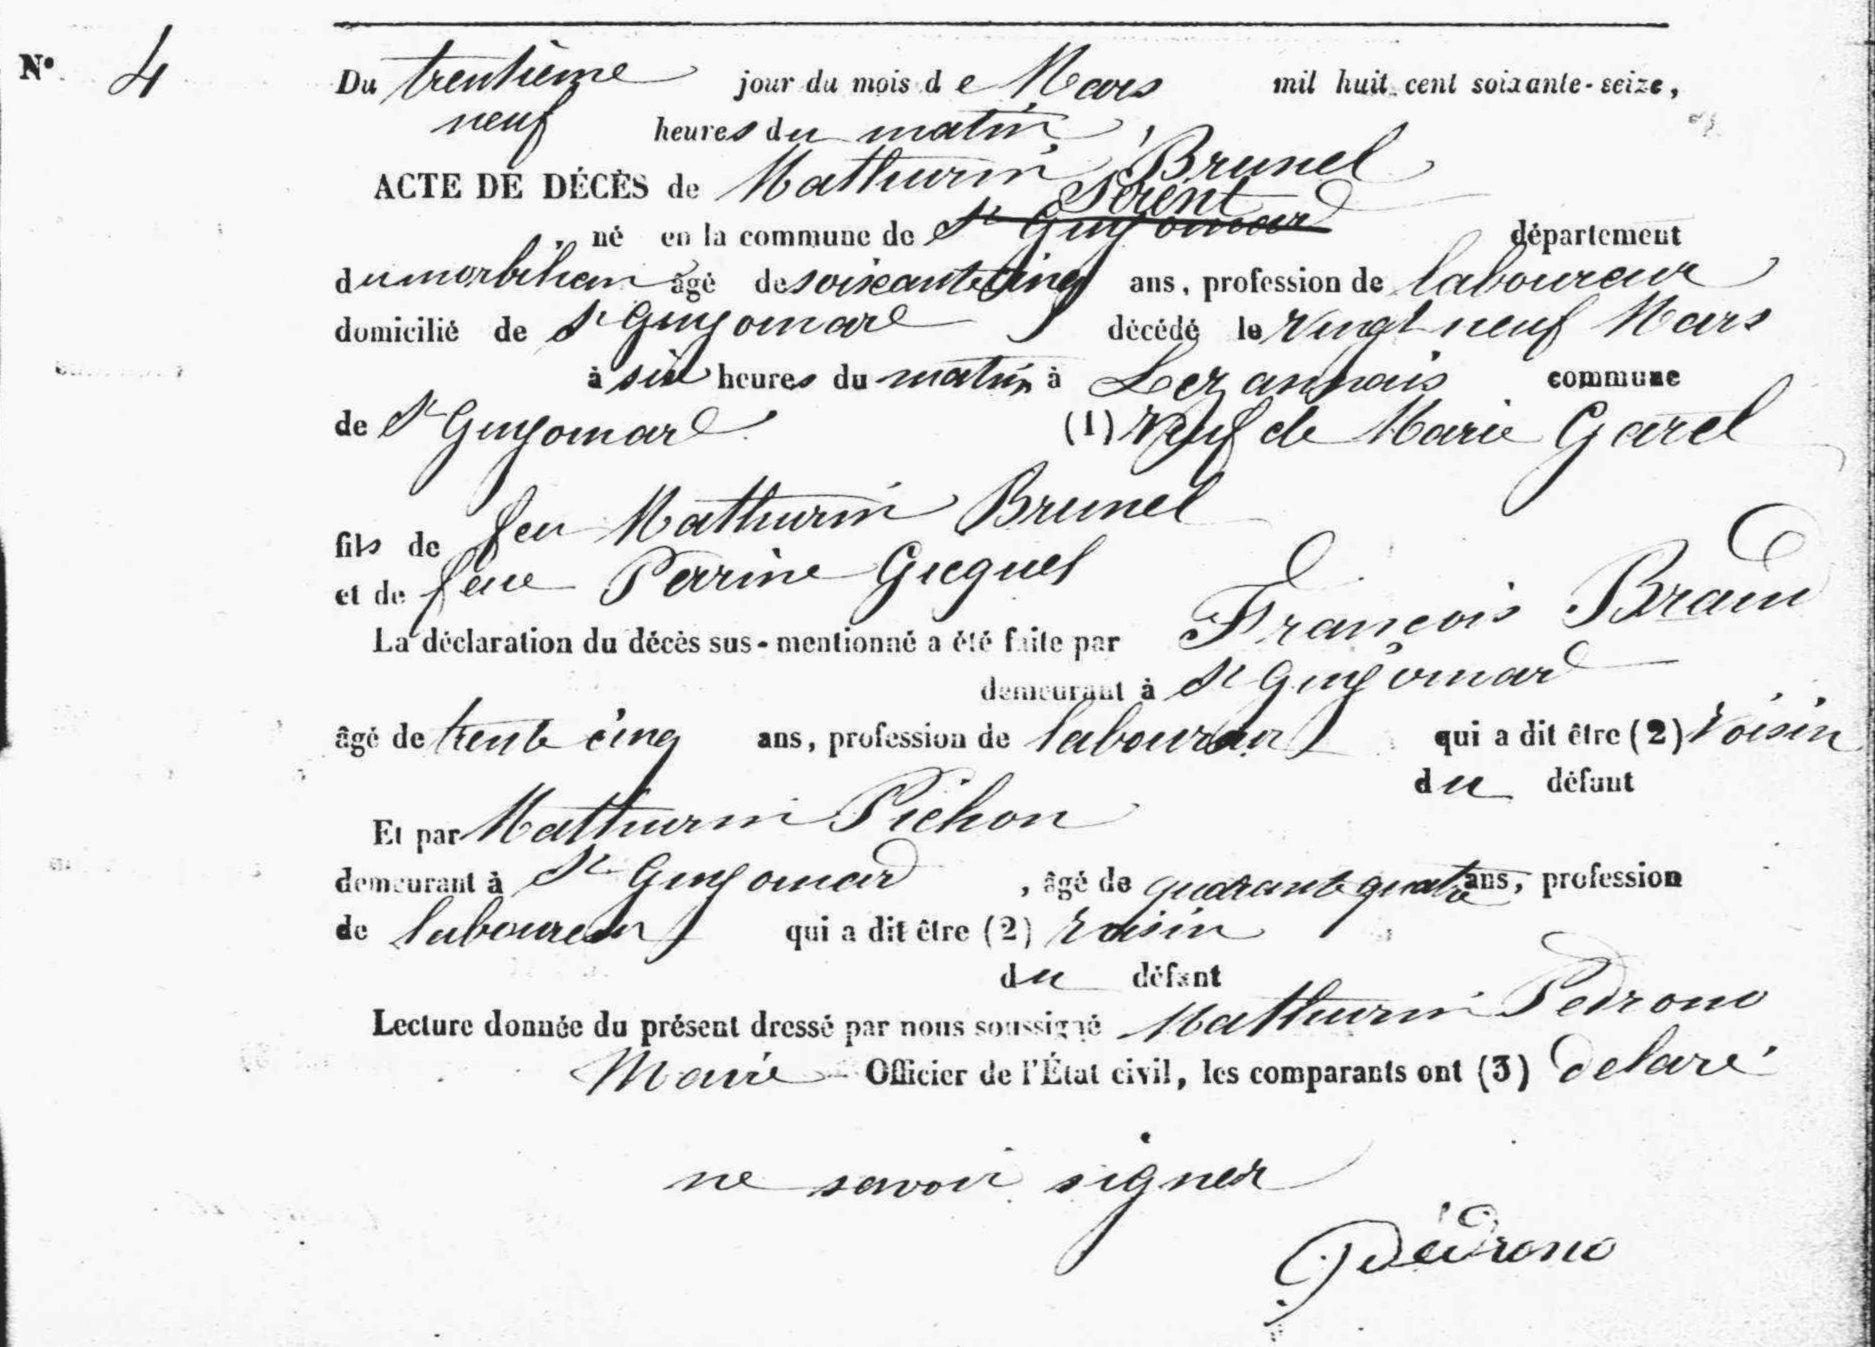 N° 4
Du trentième jour du mois de Mars mil huit cent soixante-seize,
neuf heures du matin
ACTE DE DÉCÈS de Mathurin Brunel
Sérent
né en la commune de St Guyomard département
du morbihan âgé de soixante cinq ans, profession de laboureur
domicilié de St Guyomard décédé le vingt neuf Mars
à six heures du matin à Lezannais commune
de St Guyomard (1) Veuf de Marie Garel
fils de feu Mathurin Brunel
et de feue Perrine Gicquel
La déclaration du décès sus-mentionné a été faite par François Braud
demeurant à St Guyomard
âgé de trente cinq ans, profession de laboureur qui a dit être (2) Voisin
du défunt
Et par Mathurin Pichon
demeurant à St Guyomard, âgé de quarante quatre ans, profession
de laboureur qui a dit être (2) Voisin
du défunt
Lecture donnée du présent dressé par nous soussigné Mathurin Pedrono
Maire Officier de l'État civil, les comparants ont (3) delaré
ne savoir signer
Pédrono